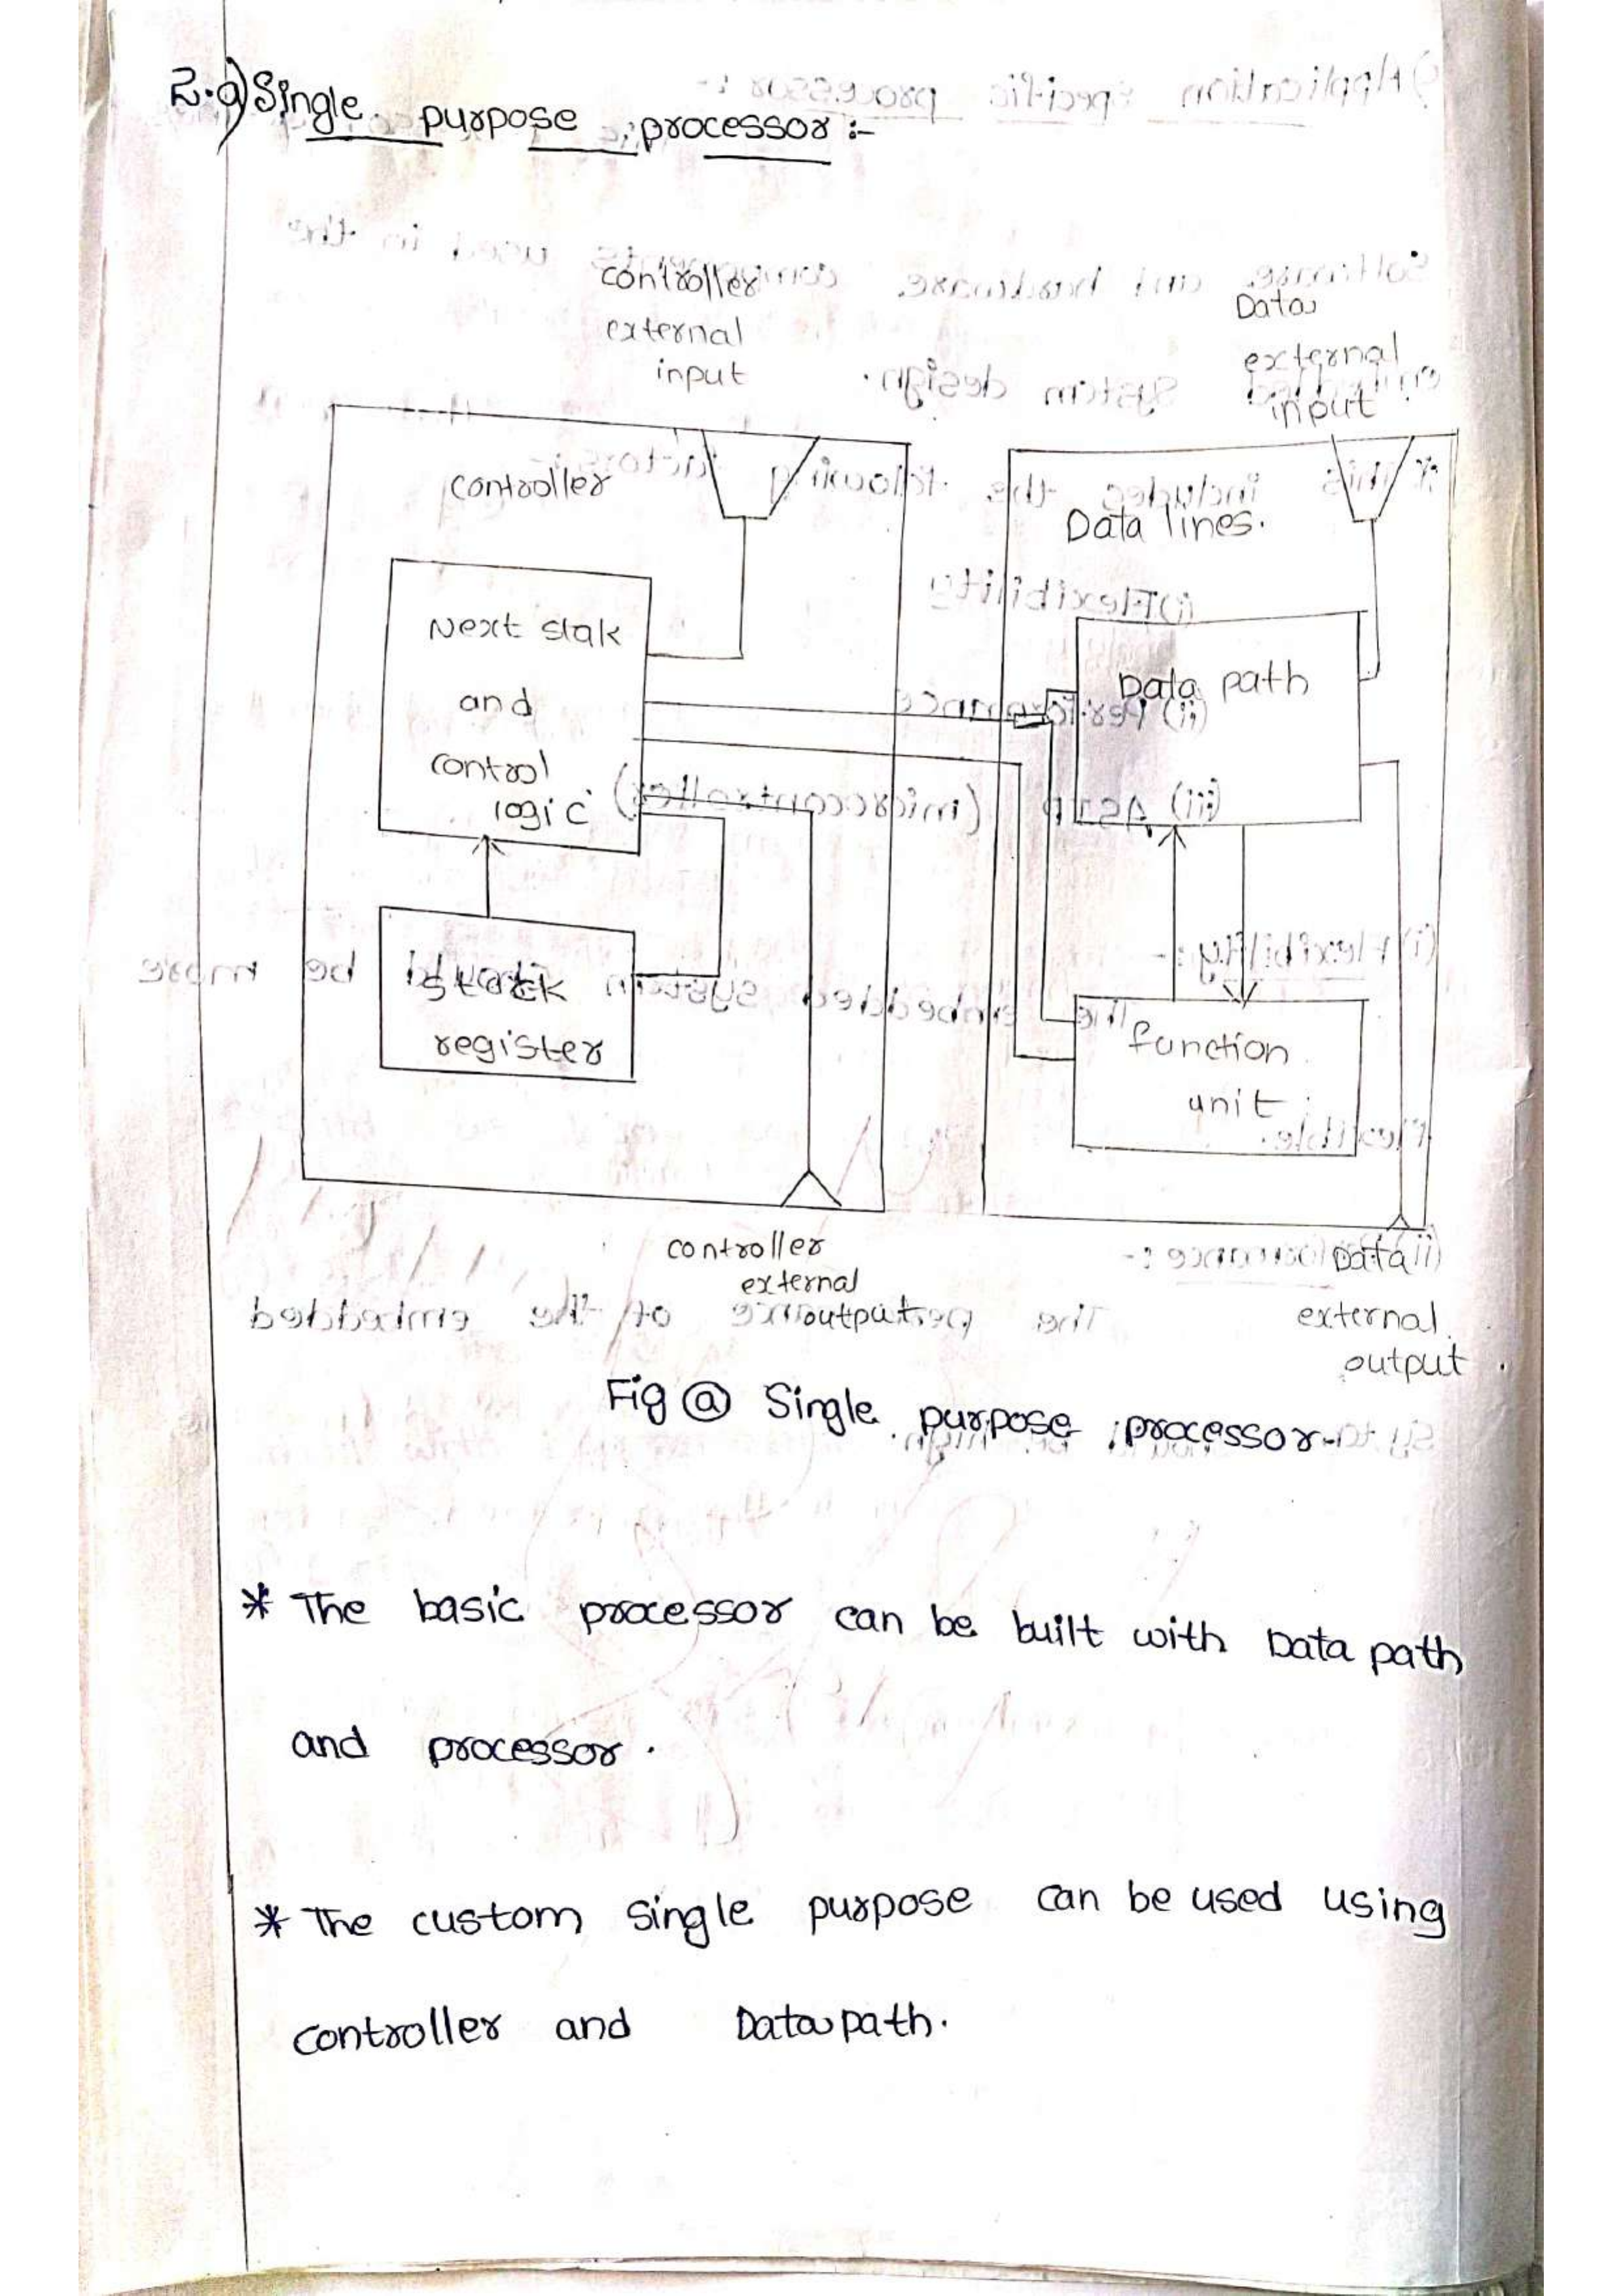 2.a) Single purpose processor :-
controller
external
input
Data
external
input
controller
Data lines.
Next stak
and
control
logic
Data path
register
function
unit
controller
external
output
Data
external
output
Fig (a) Single purpose processor
* The basic processor can be built with Data path
and processor.
* The custom single purpose can be used using
controller and Data path.